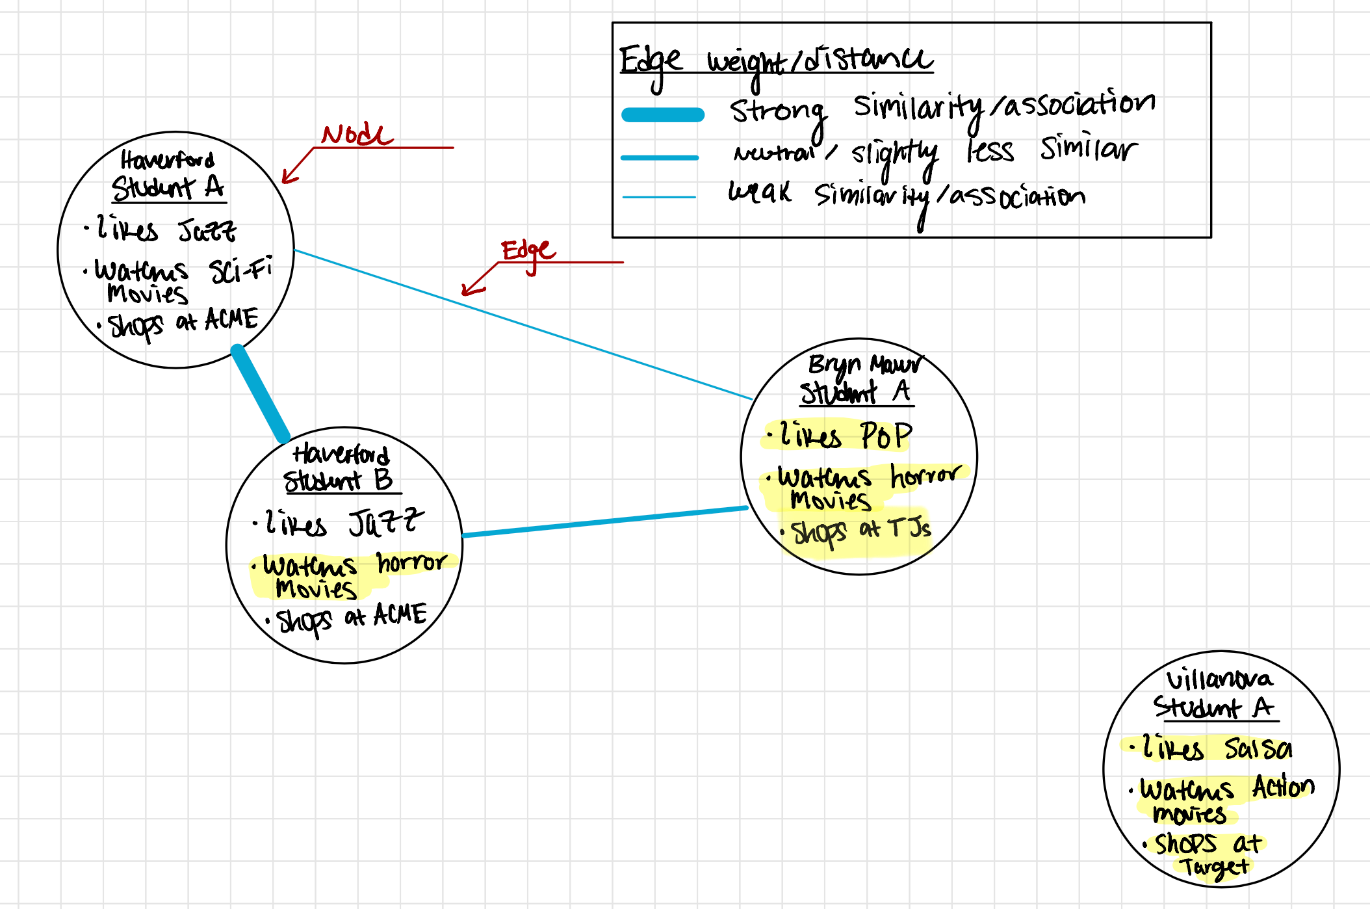 Edge weight/distance
Strong Similarity/association
neutral/ slightly less Similar
weak Similarity/association
Node
Haverford
Student A
• likes Jazz
• Watches Sci-Fi
Movies
• Shops at ACME
Edge
Bryn Mawr
Student A
• likes POP
• Watches horror
Movies
• Shops at TJs
Haverford
Student B
• likes Jazz
• Watches horror
Movies
• Shops at ACME
Villanova
Student A
• likes Salsa
• Watches Action
movies
• Shops at
Target